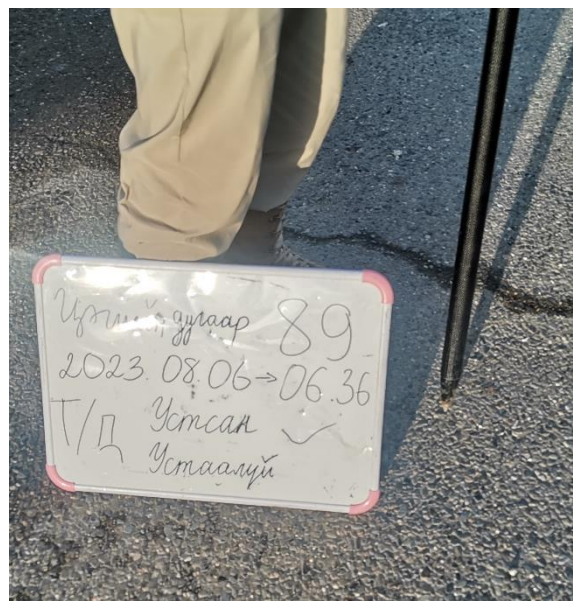 Цэгийн дугаар 89
2023.08.06→06.36
Т/Д Устсан ✓
Устаагүй